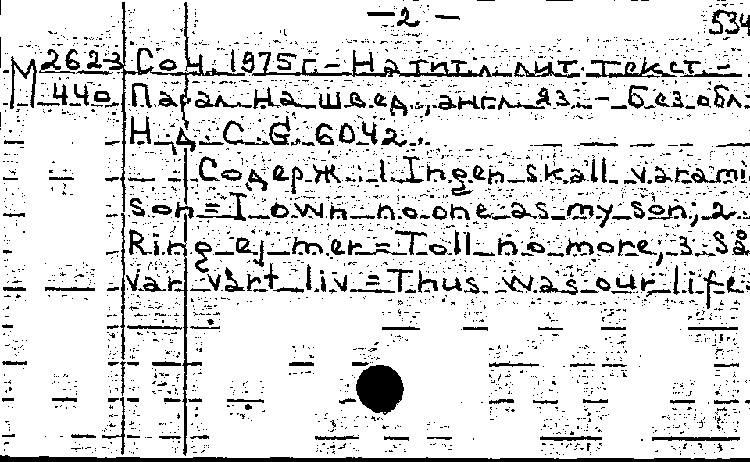 — 2 — 534
М 2623 Соч. 1975 г. - На тит. л. лит. текст. -
440 Парал. на швед., англ. яз. - Без обл.
Н. д. С. G. 6042.
Содерж.: 1. Ingen skall vara mi
son = I own no one as my son; 2.
Ring ej mer = Toll no more; 3. Så
var vårt liv = Thus was our life.